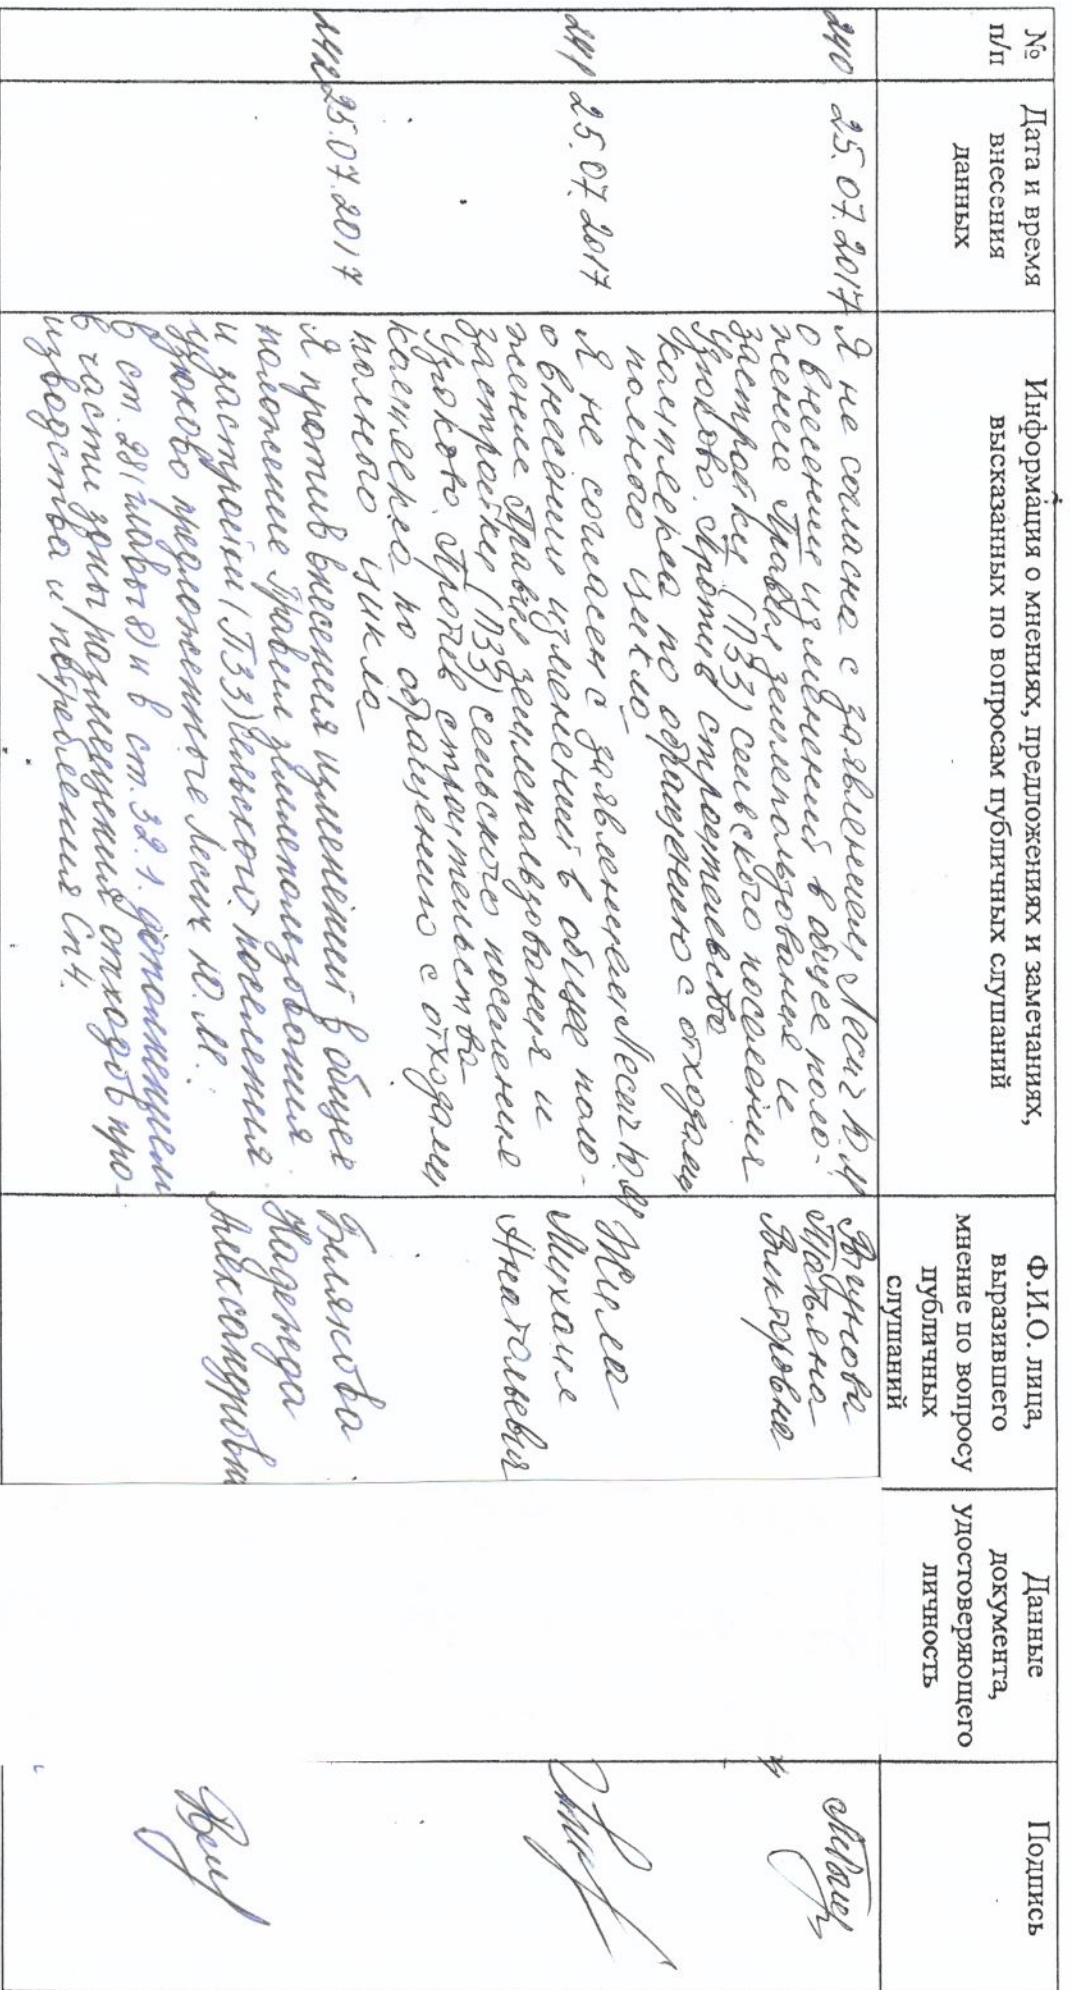 № п/п
Дата и время внесения данных
Информация о мнениях, предложениях и замечаниях,
высказанных по вопросам публичных слушаний
Ф.И.О. лица,
выразившего
мнение по вопросу
публичных
слушаний
Данные
документа,
удостоверяющего
личность
Подпись
240 25.07.2017
Я не согласна с заявлением Лесич Ю.М
о внесении изменений в общее поло-
жение Правил землепользования и
застройки (ПЗЗ) сельского поселения
Узюково. Против строительства
комплекса по обращению с отходами
полного цикла
Татьяна
Викторовна
241 25.07.2017
Я не согласен с заявлением Лесич Ю.М
о внесении изменений в общее поло-
жение Правил землепользования и
застройки (ПЗЗ) сельского поселения
Узюково. Против строительства
комплекса по обращению с отходами
полного цикла
Жила
Михаил
Анатольевич
242 25.07.2017
Я против внесения изменений в общее
положение Правил землепользования
и застройки (ПЗЗ) сельского поселения
Узюково предложенные Лесич Ю.М.
в ст. 28 (главы 8) и в ст. 32.1. дополнением
в части зоны размещения отходов про-
изводства и потребления Сп4.
Билякова
Надежда
Александровна